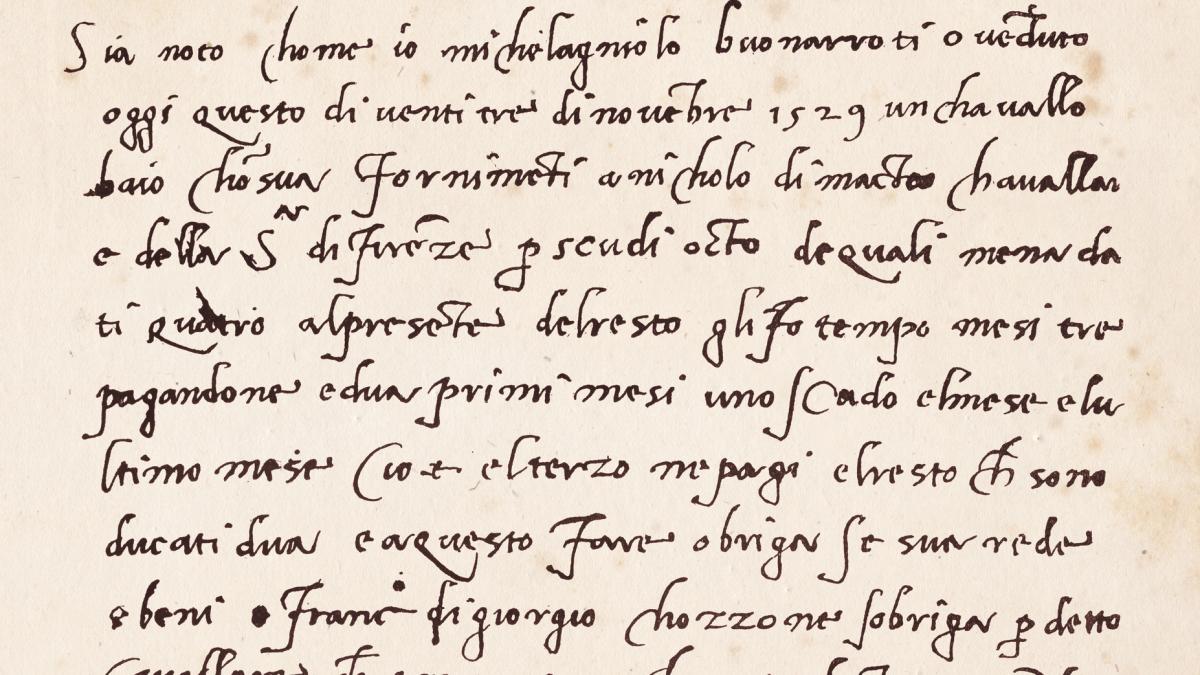 Sia noto chome io michelagniolo buonarroti o veduto
oggi questo di ventitre di novēbre 1529 un chavallo
baio chō sua fornimēti a nicholo di macteo chavallar
e della Sar di firēze p̱ scudi octo de quali mena da
ti quatro al presēte del resto gli fo tempo mesi tre
pagandone e dua primi mesi uno scudo el mese e lu
ltimo mese cioe el terzo ne pagi el resto ch̄ sono
ducati dua e a questo fare obriga se sua rede
e beni Franco di giorgio chozzone sobriga p̱ detto